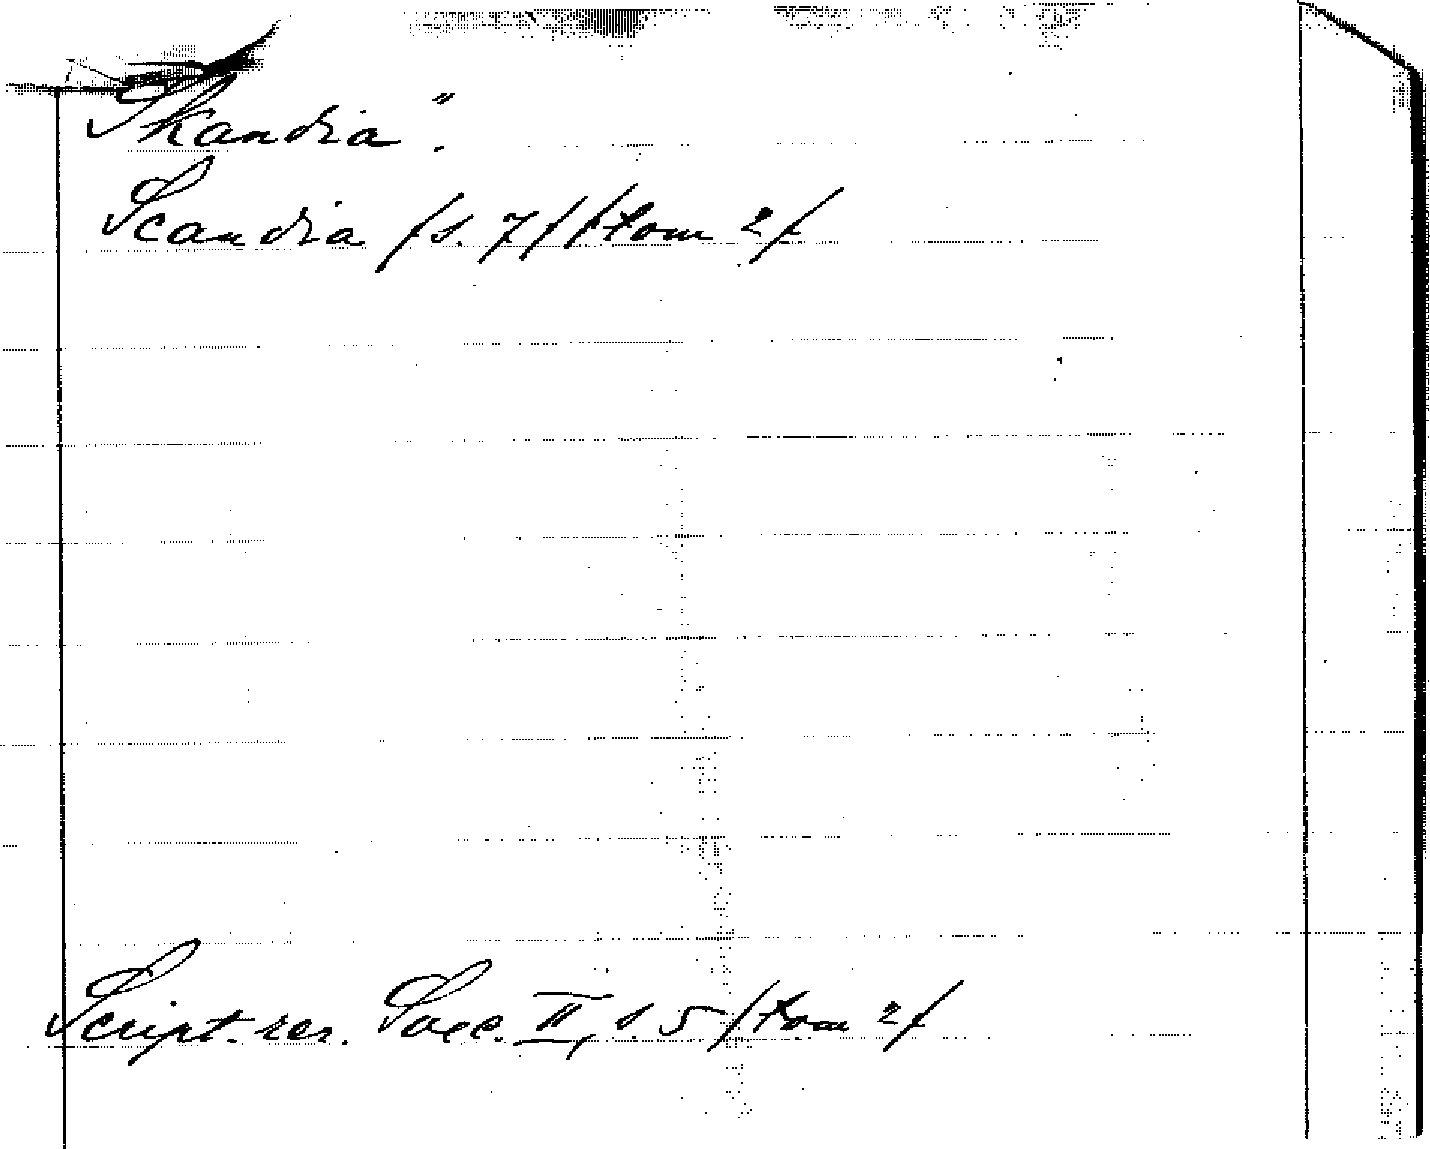 Skandia".
Scandia /s. 7/ /tom 2/
Script. rer. Svec. II, s. 5 /tom 2/